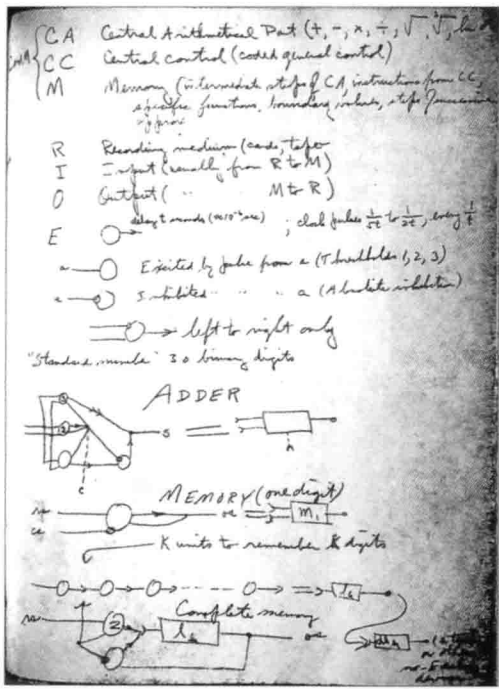 CA Central Arithmetical Part (+, -, ×, ÷, √, ∛,
CC Central control (coded general control)
M Memory (intermediate steps of CA, instructions from CC,
specific functions, boundary values, steps successive
approx
R Recording medium (cards, tape
I Input (usually from R to M)
O Output ( " M to R)
E delay t seconds ; clock pulses 1/5t to 1/2t, every 1/t
a Excited by pulse from a (Thresholds 1, 2, 3)
a Inhibited " " " a (Absolute inhibition)
left to right only
"Standard number" 30 binary digits
ADDER
1
2
s
c
MEMORY (one digit)
rs
m1
K units to remember k digits
lk
Complete memory
rs
2
lk
or other